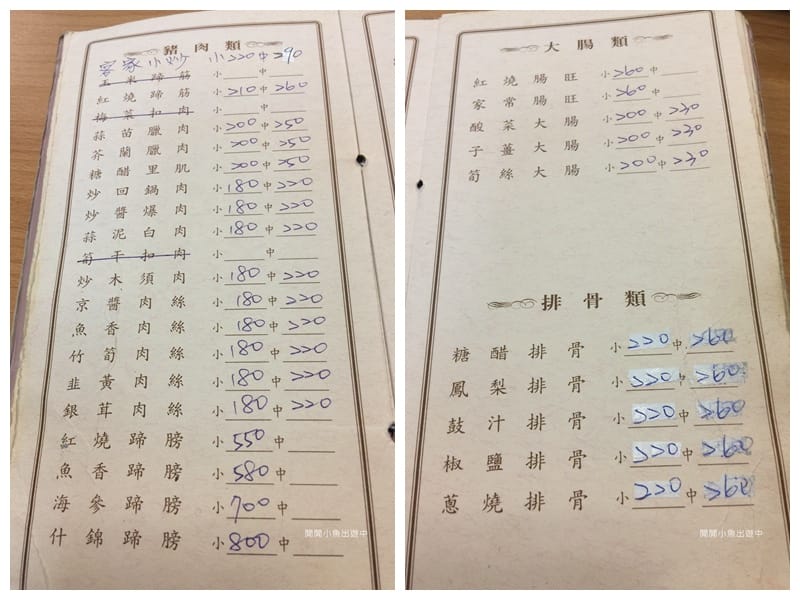 豬肉類
客家小炒 小 220 中 290
玉米蹄筋 小 中
紅燒蹄筋 小 210 中 260
梅菜扣肉 小 中
蒜苗臘肉 小 200 中 250
芥蘭臘肉 小 200 中 250
糖醋里肌 小 200 中 250
炒回鍋肉 小 180 中 220
炒醬爆肉 小 180 中 220
蒜泥白肉 小 180 中 220
筍干扣肉 小 中
炒木須肉 小 180 中 220
京醬肉絲 小 180 中 220
魚香肉絲 小 180 中 220
竹筍肉絲 小 180 中 220
韭黃肉絲 小 180 中 220
銀茸肉絲 小 180 中 220
紅燒蹄膀 小 550 中
魚香蹄膀 小 580 中
海參蹄膀 小 700 中
什錦蹄膀 小 800 中
閒閒小魚出遊中
大腸類
紅燒腸旺 小 260 中
家常腸旺 小 260 中
酸菜大腸 小 200 中 230
子薑大腸 小 200 中 230
筍絲大腸 小 200 中 230
排骨類
糖醋排骨 小 220 中 260
鳳梨排骨 小 220 中 260
鼓汁排骨 小 220 中 260
椒鹽排骨 小 220 中 260
蔥燒排骨 小 220 中 260
閒閒小魚出遊中